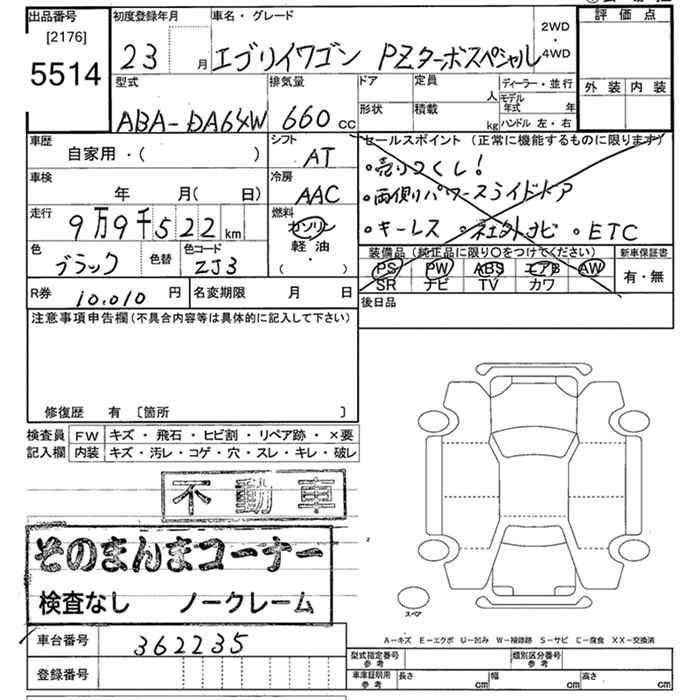 出品番号 初度登録年月 車名・グレード 評価点
[2176]
5514
23 月 エブリイワゴン PZターボスペシャル 2WD・4WD
外装 内装
型式 排気量 ドア 定員 人 ディーラー・並行
モデル年式 年
ABA-DA64W 660 cc 形状 積載 kg ハンドル 左・右
車歴 シフト セールスポイント(正常に機能するものに限ります)
自家用・( ) AT ・売りつくし!
車検 冷房 ・両側パワースライドドア
年 月( 日) AAC
走行 燃料 ・キーレス ・社外ナビ ・ETC
9万9千522km ガソリン
軽油
・
( )
色 色替 色コード 装備品(純正品に限り○をつけてください) 新車保証書
ブラック ZJ3 PS PW ABS エアB AW 有・無
SR ナビ TV カワ
R券 10,010 円 名変期限 月 日 後日品
注意事項申告欄(不具合内容等は具体的に記入して下さい)
修復歴 有 [箇所 ]
検査員 FW キズ・飛石・ヒビ割・リペア跡・×要
記入欄 内装 キズ・汚レ・コゲ・穴・スレ・キレ・破レ
不動車
そのまんまコーナー
検査なし ノークレーム
スペア
A-キズ E-エクボ U-凹み W-補修跡 S-サビ C-腐食 XX-交換済
車台番号 362235
型式指定番号 参考 類別区分番号 参考
登録番号
車庫証明用 参考 長さ cm 幅 cm 高さ cm